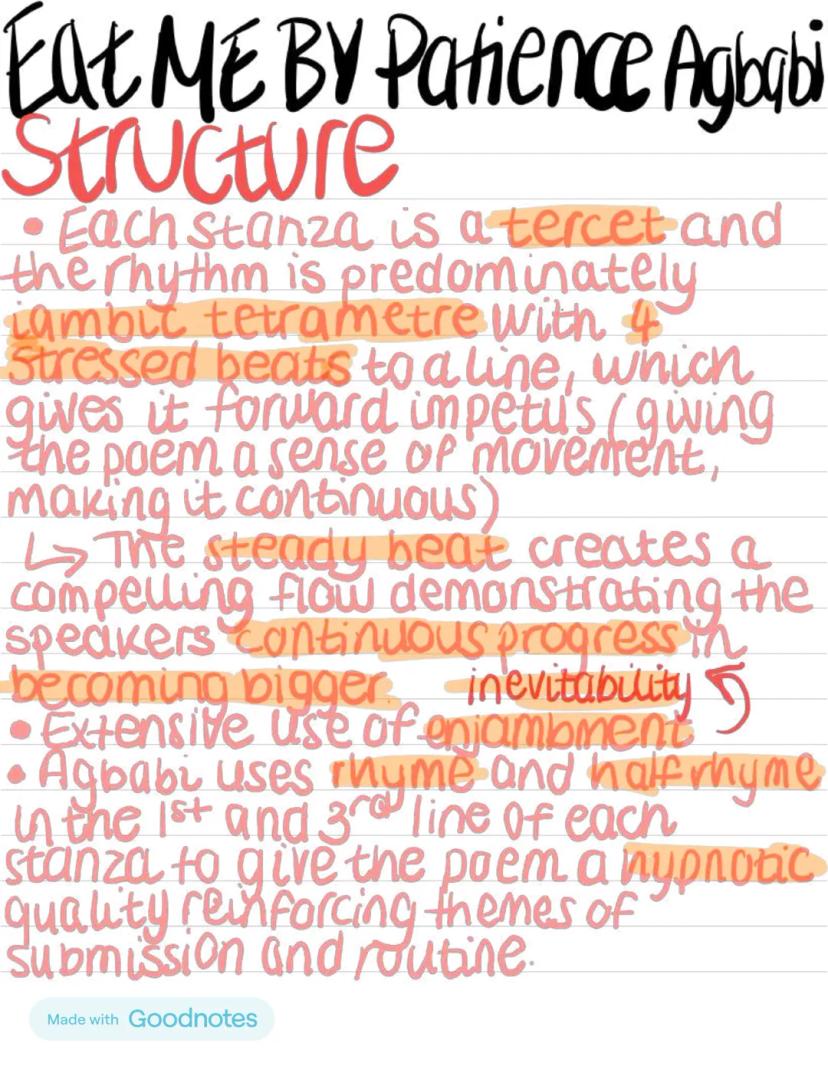 Eat ME BY Patience Agbabi
Structure
• Each stanza is a tercet and
the rhythm is predominately
iambic tetrametre with 4
stressed beats to a line, which
gives it forward impetus (giving
the poem a sense of movement,
making it continuous)
↳ The steady beat creates a
compelling flow demonstrating the
speakers continuous progress in
becoming bigger inevitability
• Extensive use of enjambment
• Agbabi uses rhyme and half rhyme
in the 1st and 3rd line of each
stanza to give the poem a hypnotic
quality reinforcing themes of
submission and routine.
Made with Goodnotes